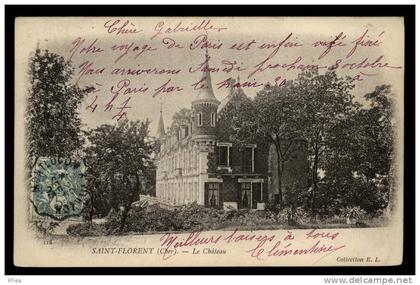 Chère Gabrielle,
Votre voyage de Paris est enfin
Nous arriverons Samedi prochain 8 octobre
à Paris par le
4 h 7
118
SAINT-FLORENT (Cher). — Le Château
Meilleurs baisers à tous
Clémentine
Collection E. L.
www.delcampe.net